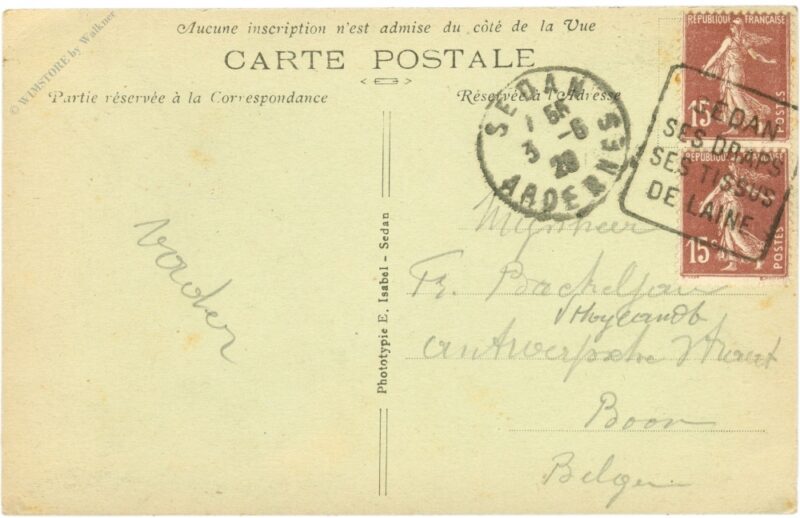 Aucune inscription n'est admise du côté de la Vue
CARTE POSTALE
Partie réservée à la Correspondance
Réservée à l'Adresse
© WIMSTORE by Walkner
RÉPUBLIQUE FRANÇAISE
15
POSTES
RÉPUBLIQUE FRANÇAISE
15
POSTES
SEDAN
3 -6
ARDENNES
SEDAN
SES DRAPS
SES TISSUS
DE LAINE
vader
Phototypie E. Isabel - Sedan
Mynheer
Fr.
Antwerpsche straat
Boom